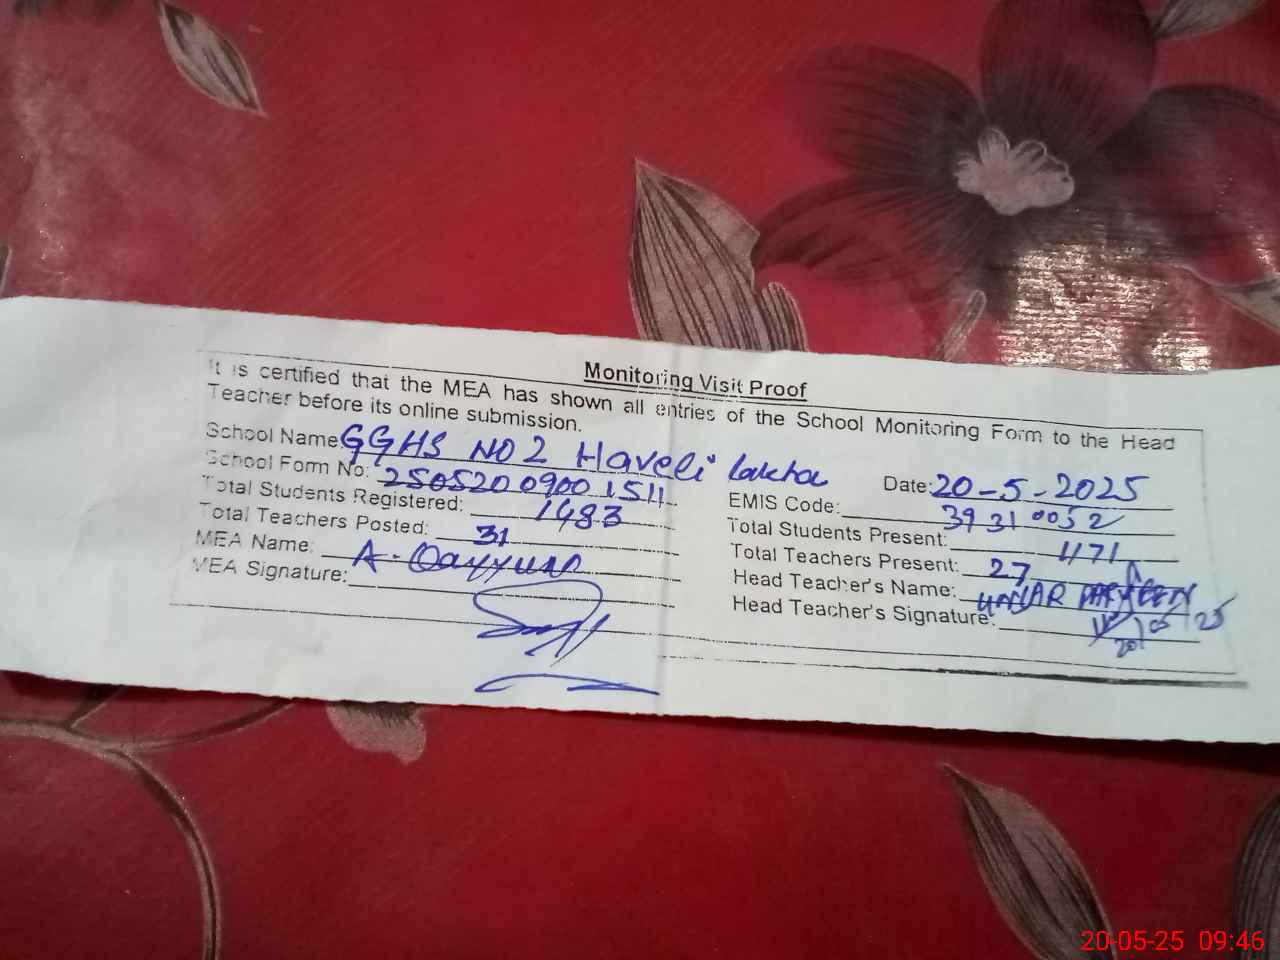 Monitoring Visit Proof
It is certified that the MEA has shown all entries of the School Monitoring Form to the Head
Teacher before its online submission.
School Name GGHS NO 2 Haveli Lakha Date: 20-5-2025
School Form No: 2505200900 1511 EMIS Code: 39310052
Total Students Registered: 1483 Total Students Present: 1171
Total Teachers Posted: 31 Total Teachers Present: 27
MEA Name: A. Qayyum Head Teacher's Name: PARVEEN
MEA Signature: Head Teacher's Signature:
20/05/25
20-05-25 09:46